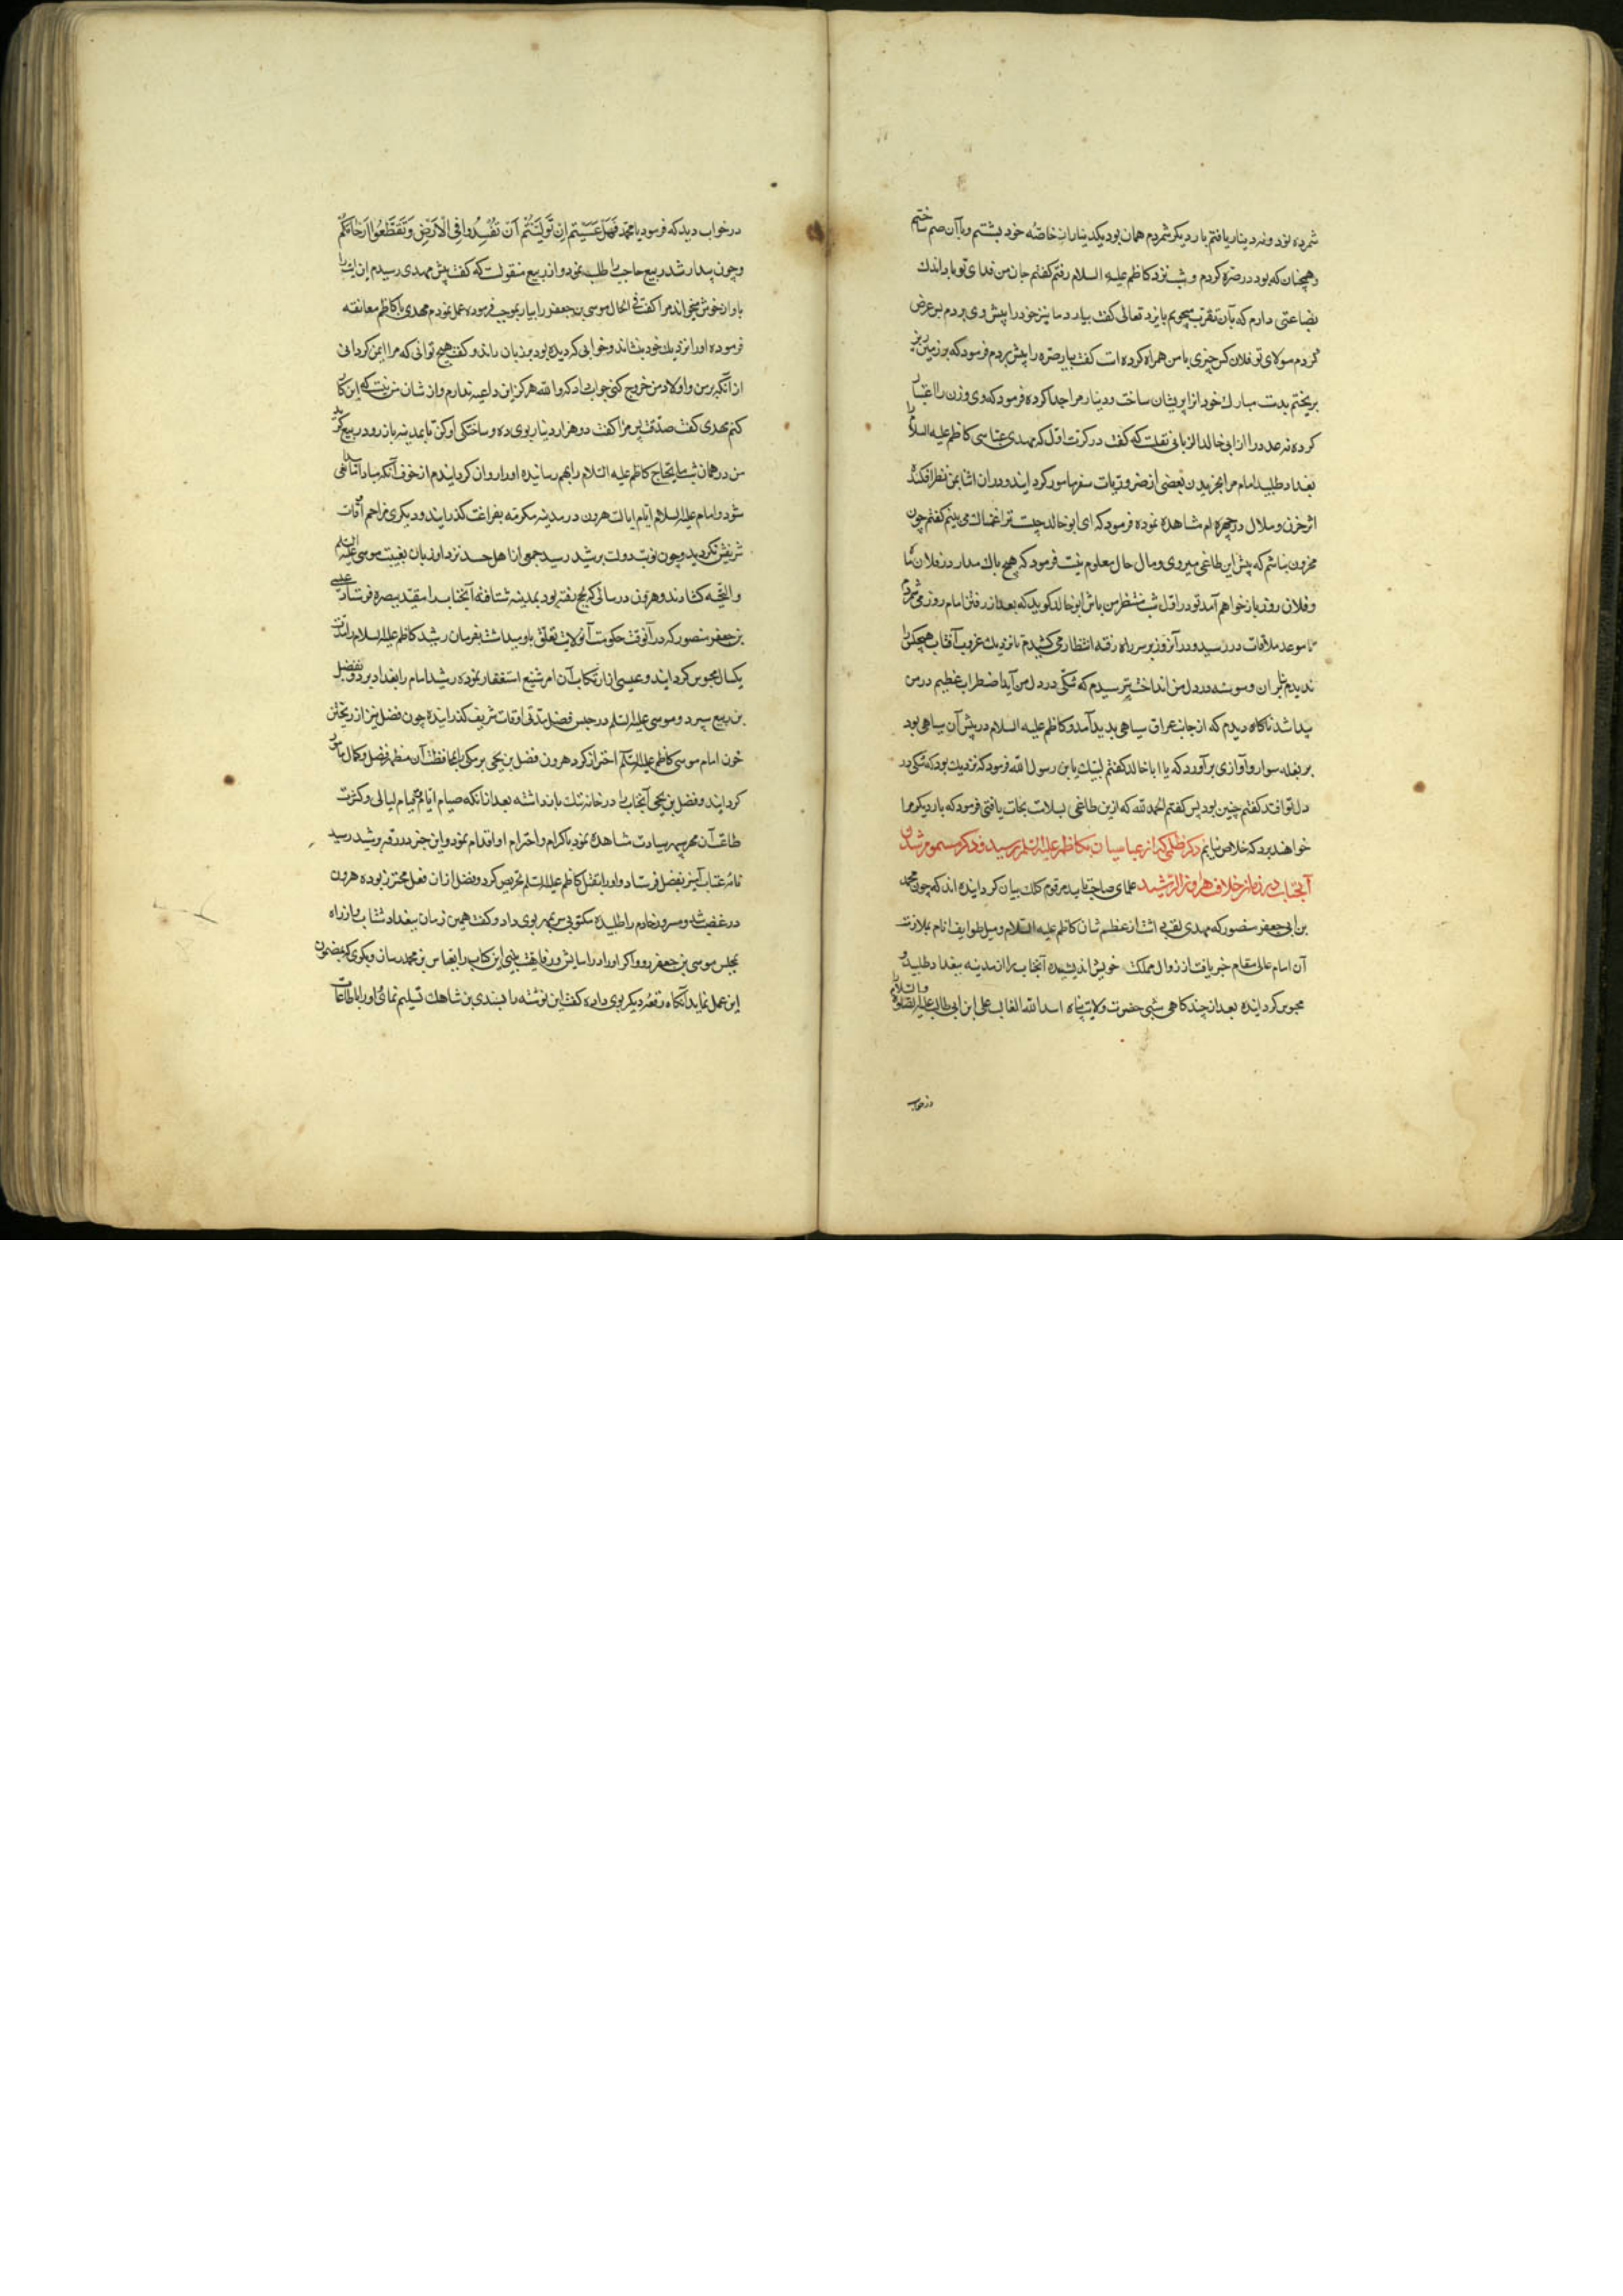 شمرده نود و نه دینار یافتم بار دیگر شمردم همان بود یکدینار از خاصّه خود بشستم و با آن ضم ساختم
و همچنان که بود در صرّه کردم و شب نزد کاظم علیه السلام رفتم گفتم جان من فدای تو باد اندک
بضاعتی دارم که بآن تقرّب میجویم بایزد تعالی گفت بیار دمانیز خود را پیش وی بردم پس عرض
کردم مولای تو فلان کس چیزی با من همراه کرده است گفت بیار صرّه را پیش بردم فرمود که بر زمین ریز
بریختم بدست مبارک خود انرا پریشان ساخت و دینار مرا جدا کرده فرمود که وی وزن را اعتبار
کرده نه عدد را از ابی خالد الزبانی نقلست که گفت در کرت اول که مهدی عباسی کاظم علیه السلام را
بغداد طلبید امام مرا بخریدن بعضی از ضروریات سفر مامور گردانید و در ان اثنا بمن نظر افکند
اثر حزن و ملال در چهره ام مشاهده نموده فرمود که ای ابو خالد چیست ترا غمناک می بینم گفتم چون
محزون نباشم که پیش این طاغی میروی و مال حال معلوم نیست فرمود که هیچ باک مدار در فلان ماه
و فلان روز باز خواهم آمد تو در اول شب منتظر من باش ابو خالد گوید که بعد از رفتن امام روز می شمردم
تا موعد ملاقات در رسید و در آنروز بر سر راه رفته انتظار می کشیدم تا نزدیک غروب آفتاب هیچکس را
ندیدم شیطان وسوسه در دل من انداخت ترسیدم که شکی در دل من آید اضطراب عظیم در من
پیدا شد ناگاه دیدم که از جانب عراق سیاهی پدید آمد و کاظم علیه السلام در پیش آن سیاهی بود
بر بغله سوار و آوازی برآورد که یا ابا خالد گفتم لبیک یا بن رسول الله فرمود که نزدیک بود که شکی در
دل تو افتد گفتم چنین بود پس گفتم الحمد لله که ازین طاغی بسلامت نجات یافتی فرمود که بار دیگر مرا
خواهند برد که خلاص نیابم ذکر ظلمی که از عباسیان بکاظم علیه السلم رسید و ذکر مسموم شدن
آنجناب در زمان خلافت هارون الرشید علمای صاحب تایید مرقوم کلک بیان گردانیده اند که چون محمد
بن ابی جعفر منصور که مهدی لقب یافته است از عظم شان کاظم علیه السلام و میل طوایف انام بملازمت
آن امام عالی مقام خبر یافت از زوال مملکت خویش اندیشیده آنجناب را از مدینه ببغداد طلبید و
محبوس گردانیده بعد از چند گاهی شبی حضرت ولایت پناه اسد الله الغالب علی ابن ابی طالب علیه الصلوة والسلام
در خواب
در خواب دید که فرمود یا محمد فَهَلْ عَسَیْتُمْ اِنْ تَوَلَّیْتُمْ اَنْ تُفْسِدُوا فِی الْاَرْضِ وَتُقَطِّعُوا اَرْحَامَکُمْ
و چون بیدار شد ربیع حاجب را طلب نمود و از ربیع منقولست که گفت پیش مهدی رسیدم این آیت را
باواز خوش میخواند مرا گفت فی الحال موسی بن جعفر را بیار بموجب فرموده عمل نمودم مهدی با کاظم معانقه
فرموده او را نزدیک خود بنشاند و خوابی که دیده بود بر زبان راند و گفت هیچ توانی که مرا ایمن گردانی
از آنکه بر من و اولاد من خروج کنی جواب داد که والله هرگز این داعیه ندارم و از شان من نیست که این کار
کنم مهدی گفت صدقت پس مرا گفت دو هزار دینار بوی ده و ساختگی او کن تا بمدینه باز رود ربیع گوید
من در همان شب مایحتاج کاظم علیه السلام را بهم رسانیده او را روان گردانیدم از خوف آنکه مبادا مانعی
شود و امام علیه السلام تا ایام ایالت هرون در مدینه مکرمه بفراغت گذرانید و دیگری مزاحم اوقات
شریفش نگردید و چون نوبت دولت برشید رسید جمعی از اهل حسد نزد او زبان بغیبت موسی علیه السلم
والتحیه گشادند و هرون در سالی که بحج رفته بود بمدینه شتافته آنجناب را مقید ببصره فرستاد و عیسی
بن جعفر منصور که در آنوقت حکومت آنولایت تعلق باو میداشت بفرمان رشید کاظم علیه السلام را مدت
یکسال محبوس گردانید و عیسی از ارتکاب آن امر شنیع استغفار نموده رشید امام را ببغداد برد و بفضل
بن ربیع سپرد و موسی علیه السلم در حبس فضل مدتی اوقات شریف گذرانیده چون فضل نیز از ریختن
خون امام موسی کاظم علیه السلم احتراز کرد هرون فضل بن یحیی برمکی را بمحافظت آن مظهر فضل و کمال مامور
گردانید و فضل بن یحیی آنجناب را در خانه تنک باز داشته بعد از آنکه صیام ایام و قیام لیالی و کثرت
طاعت آن مهر سپهر سیادت مشاهده نمود باکرام و احترام او اقدام نمود و این خبر در رقه برشید رسید
نامه عتاب آمیز بفضل فرستاد و او را بقتل کاظم علیه السلم تحریص کرد و فضل از ان فعل محترز بوده هرون
در غضب شد و مسرور خادم را طلبیده مکتوبی سر بمهر بوی داد و گفت همین زمان ببغداد شتاب و از راه
بمجلس موسی بن جعفر رو و اگر او را در اسایش و رفاهیت بینی این کتاب را بعباس بن محمد رسان و بگوی که بمضمون
این عمل نماید آنگاه رقعه دیگر بوی داده گفت این نوشته را بسندی بن شاهک تسلیم نمای و او را باطاعت